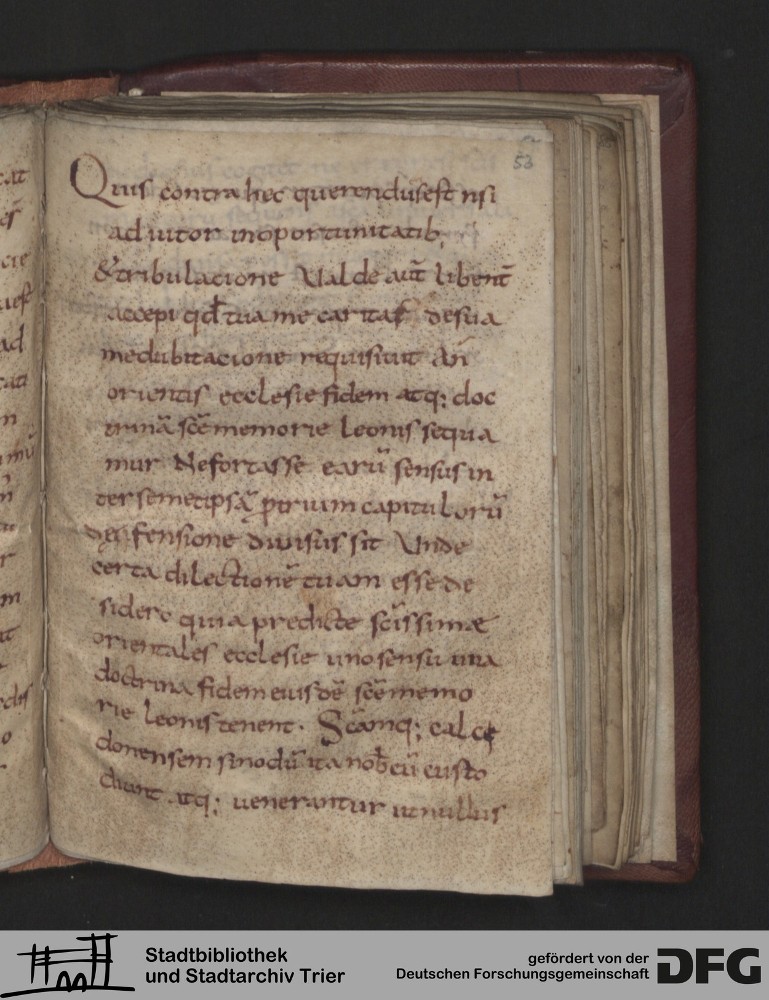 53
Quis contra hec querendus est nisi
adiutor inoportunitatib;
& tribulacione Valde aut̄ libent̄
accepi qđ tua me caritas desua
medubitacione requisiuit An̄
orientis ecclesie fidem atq; doc
trinā scē memorie leonis sequa
mur Nefortasse earū sensus in
ter semetipsā ptrium capitulorū
defensione diuisus sit Unde
certa dilectionē tuam esse de
sidero quia predicte scīssimæ
orientales ecclesie uno sensu una
doctrina fidem eiusdē scē memo
rie leonis tenent. Scāmq; calce
donensem sinodū ita nobcū custo
diunt atq; uenerantur ut nullus
Stadtbibliothek
und Stadtarchiv Trier
gefördert von der
Deutschen Forschungsgemeinschaft
DFG